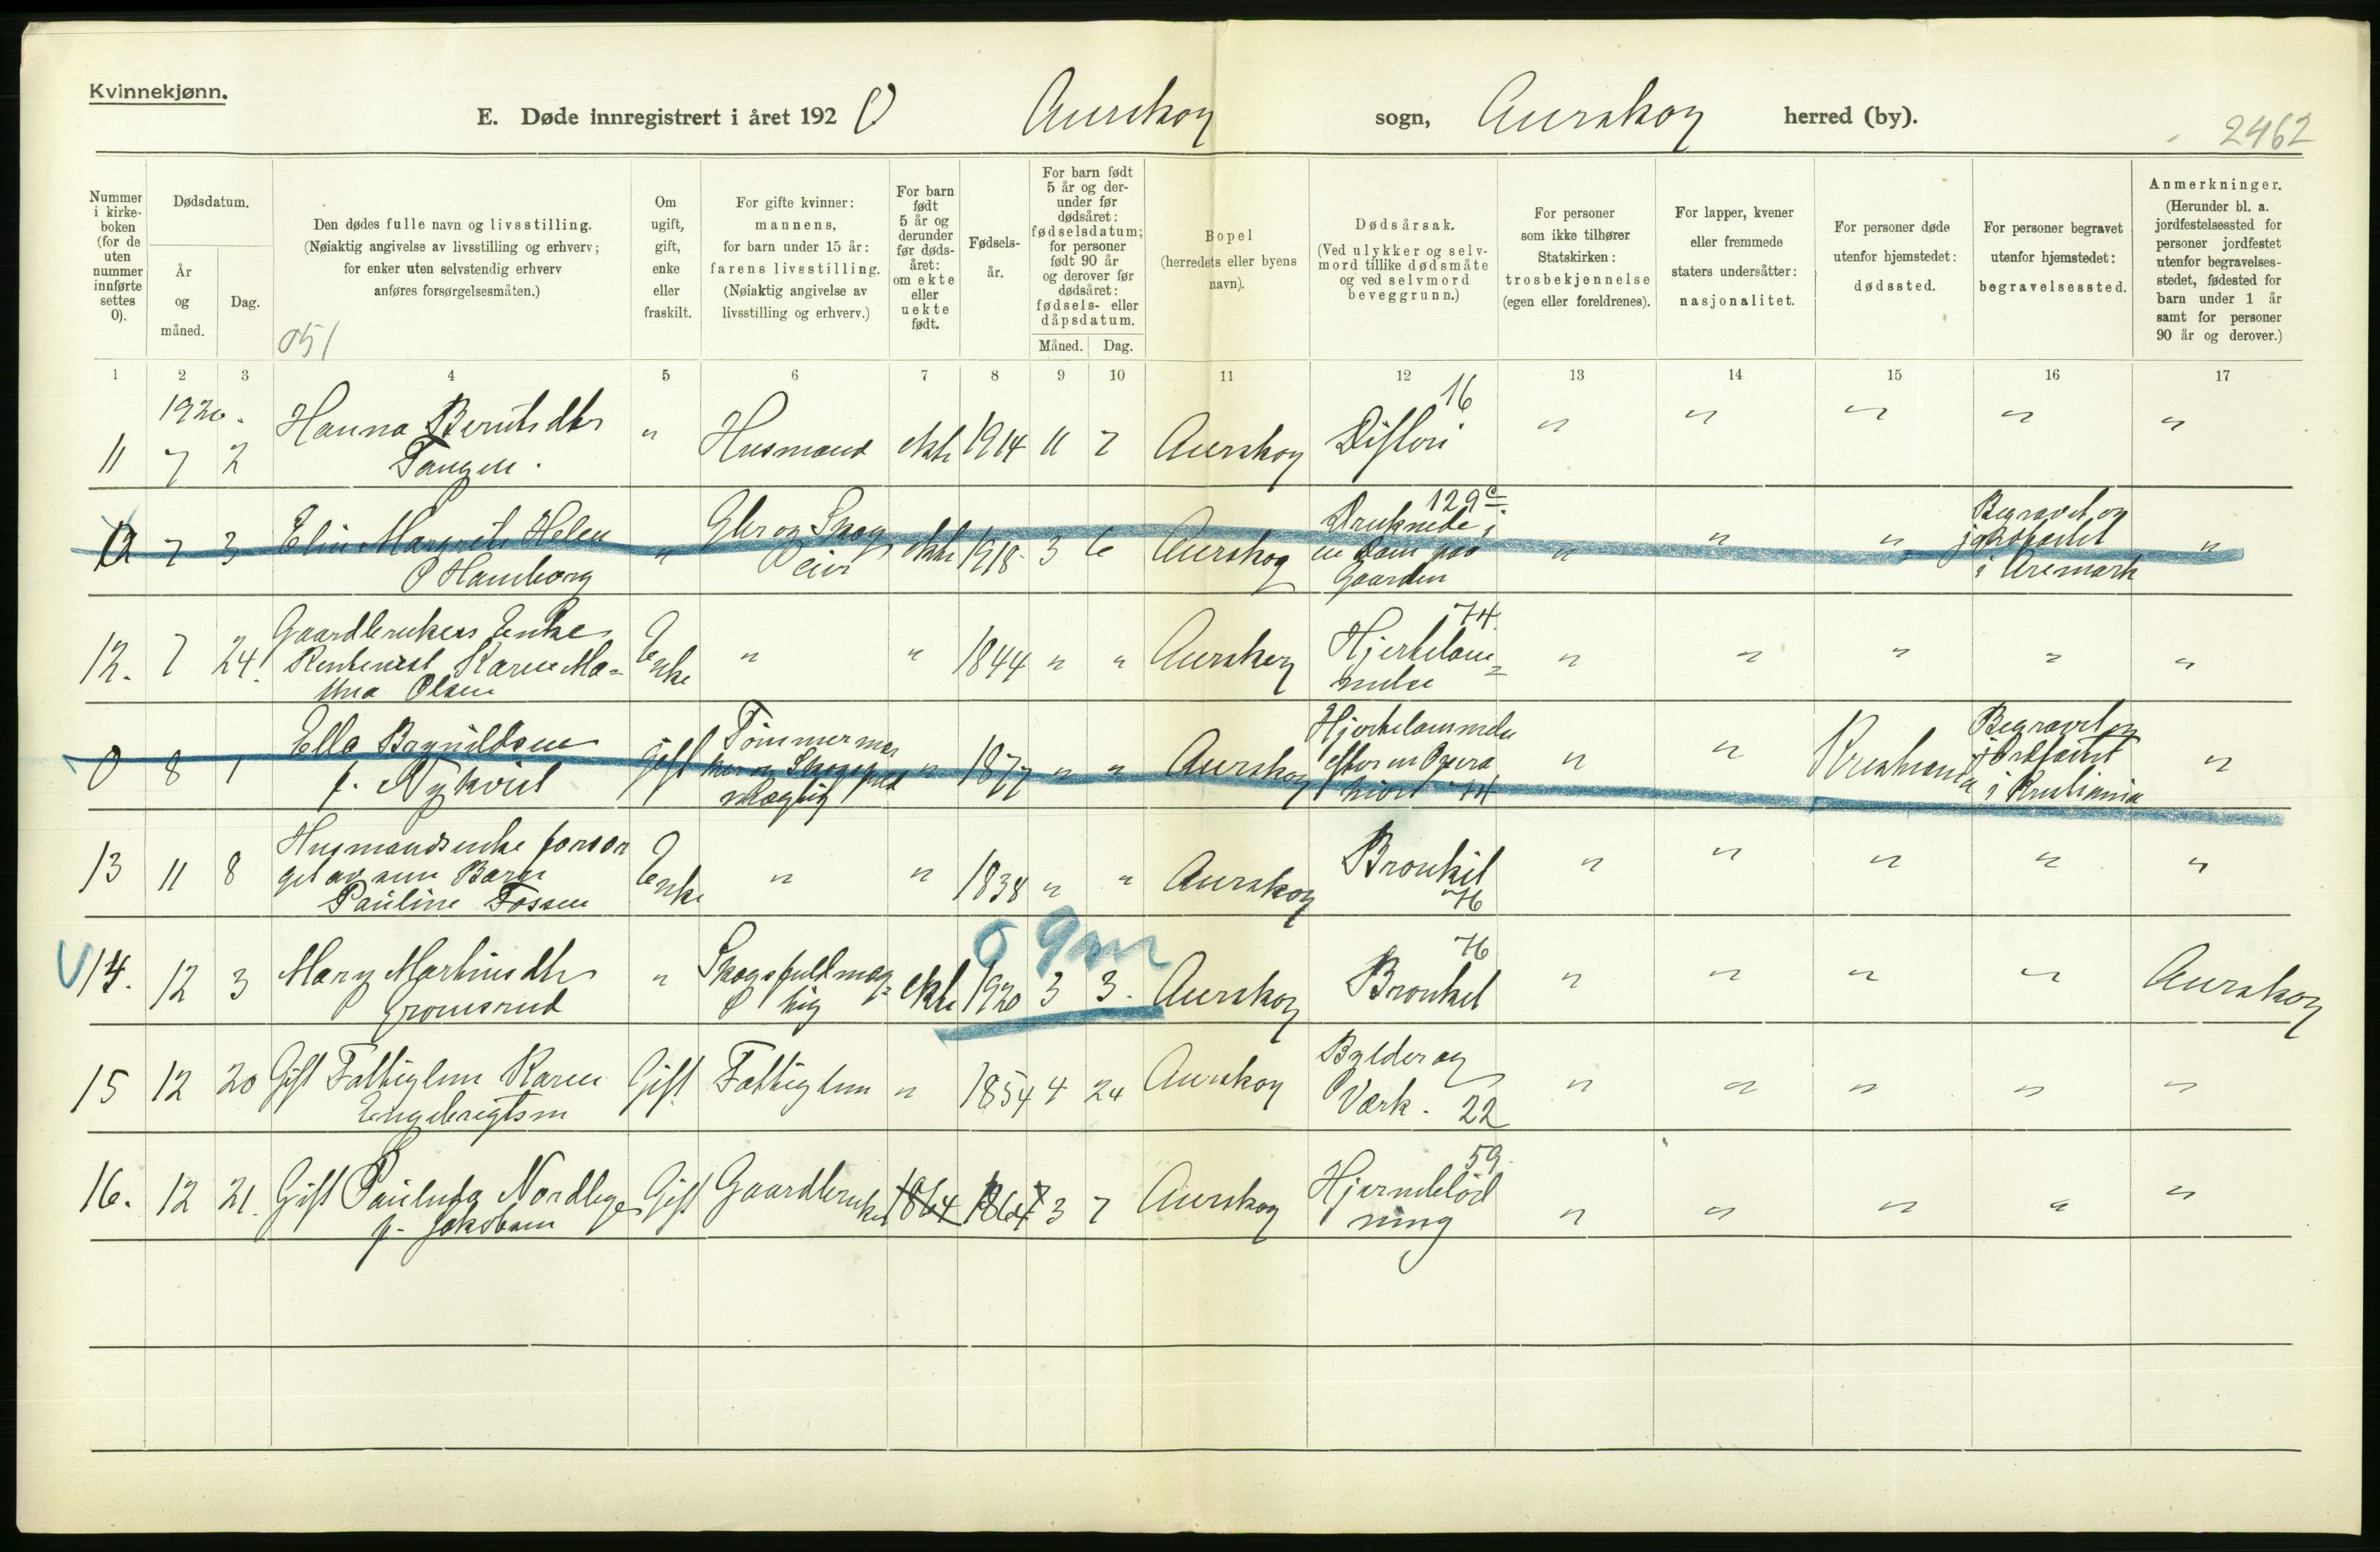 Kvinnekjønn.
E. Døde innregistrert i året 1920 Aurskog sogn, Aurskog herred (by).
2462
Nummer i kirke- boken (for de uten nummer innførte settes 0).
Dødsdatum.
År og måned.
Dag.
Den dødes fulle navn og livsstilling.
(Nøiaktig angivelse av livsstilling og erhverv;
for enker uten selvstendig erhverv
anføres forsørgelsesmåten.)
051
Om ugift, gift, enke eller fraskilt.
For gifte kvinner: mannens, for barn under 15 år: farens livsstilling. (Nøiaktig angivelse av livsstilling og erhverv.)
For barn født 5 år og derunder før døds- året: om ekte eller uekte født.
Fødsels- år.
For barn født 5 år og der- under før dødsåret: fødselsdatum; for personer født 90 år og derover før dødsåret: fødsels- eller dåpsdatum.
Måned. Dag.
Bopel (herredets eller byens navn).
Dødsårsak. (Ved ulykker og selv- mord tillike dødsmåte og ved selvmord beveggrunn.)
For personer som ikke tilhører Statskirken: trosbekjennelse (egen eller foreldrenes).
For lapper, kvener eller fremmede staters undersåtter: nasjonalitet.
For personer døde utenfor hjemstedet: dødssted.
For personer begravet utenfor hjemstedet: begravelsessted.
Anmerkninger. (Herunder bl. a. jordfestelsessted for personer jordfestet utenfor begravelses- stedet, fødested for barn under 1 år samt for personer 90 år og derover.)
1 2 3 4 5 6 7 8 9 10 11 12 13 14 15 16 17
1920. Hanna Berntsdtr 16
11 7 2 Tangen. " Husmand ekte 1914 11 7 Aurskog Difteri " " " " "
129c
7 3 Elin Margrete Helen " Gbr og Skog ekte 1918 3 6 Aurskog Druknede i " " " Begravet og "
Hamborg eier en Dam paa jordfæstet
Gaarden i Aremark
Gaardbrukers Enke 74.
12. 7 24. Rentenist Karen Ma= Enke " " 1844 " " Aurskog Hjertelam= " " " " "
Olsen melse
0 8 1 Ella Brynildsen gift Tømmermær " 1877 " " Aurskog Hjertelammelse " " Kristiania Begravet og "
f. Nykvist ker og Skogsfuld efter en Opera jordfæstet
mægtig tion 74 i Kristiania
Husmandsenke forsør
13 11 8 get av sine Barn Enke " " 1838 " " Aurskog Bronkit " " " " "
Pauline Fossen 76
0 9m
14. 12 3 Mary Martinsdtr " Skogsfuldmæg= ekte 1920 3 3. Aurskog 76 Bronkit " " " " Aurskog
Gromsrud tig
15 12 20 Gift Fattiglem Karen Gift Fattiglem " 1854 4 24 Aurskog Bylder og " " " " "
Engebrigtsen Værk. 22
59.
16. 12 21. Gift Nordby Gift Gaardbruker 1864 1864 3 7 Aurskog Hjerneblød " " " " "
f. Jakobsen ning